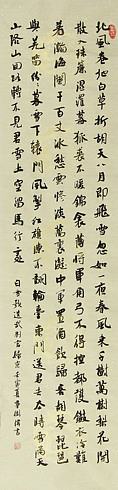 北風卷地白草折胡天八月即飛雪忽如一夜春風来千樹萬樹梨花開
散入珠簾濕羅幕狐裘不暖錦衾薄將軍角弓不得控都護鐵衣冷難
着瀚海闌干百丈冰愁雲慘淡萬里凝中軍置酒飲歸客胡琴琵琶
與羌笛紛紛暮雪下轅門風掣紅旗凍不翻輪臺東門送君去去時雪滿天
山路山迴路轉不見君雪上空留馬行處 白雪歌送武判官歸京